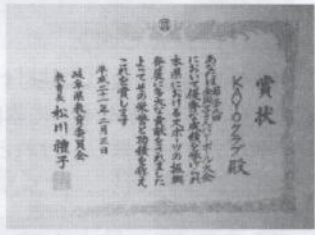 賞状
KAYOクラブ殿
において優秀な成績を挙げられ
本県におけるスポーツの振興
発展に多大な貢献をされました
よってその栄誉と功績を称え
これを賞します
平成二十一年二月五日
岐阜県教育委員会
教育長 松川禮子